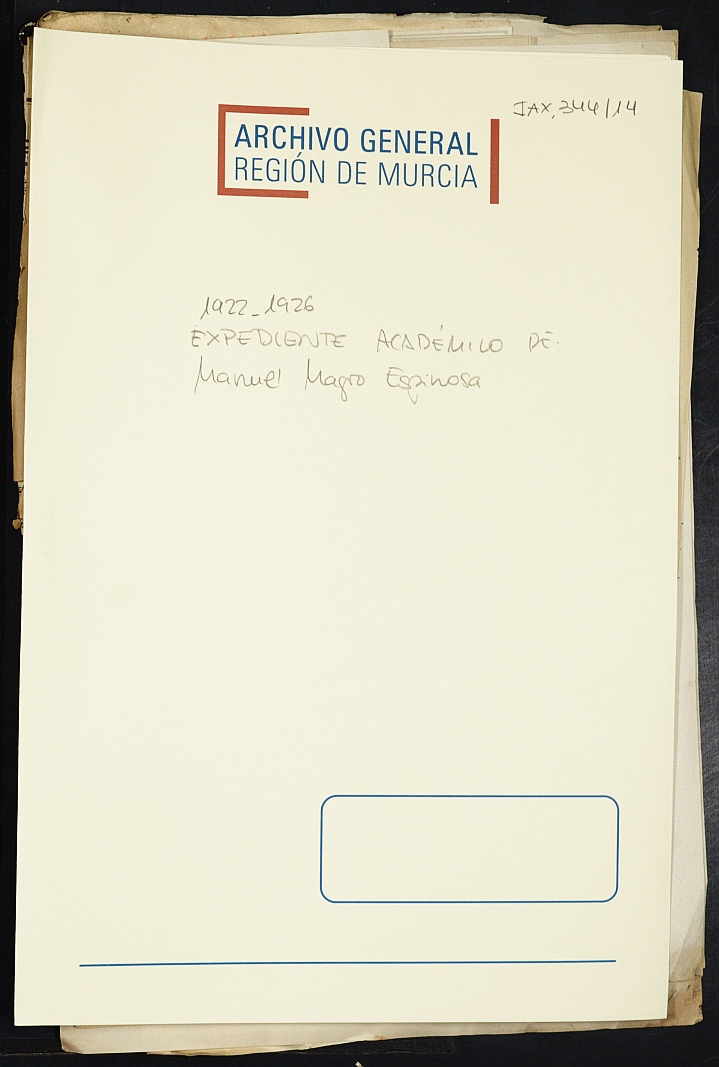 IAX,344/14
ARCHIVO GENERAL
REGIÓN DE MURCIA
1922-1926
EXPEDIENTE ACADÉMICO DE:
Manuel Magro Espinosa